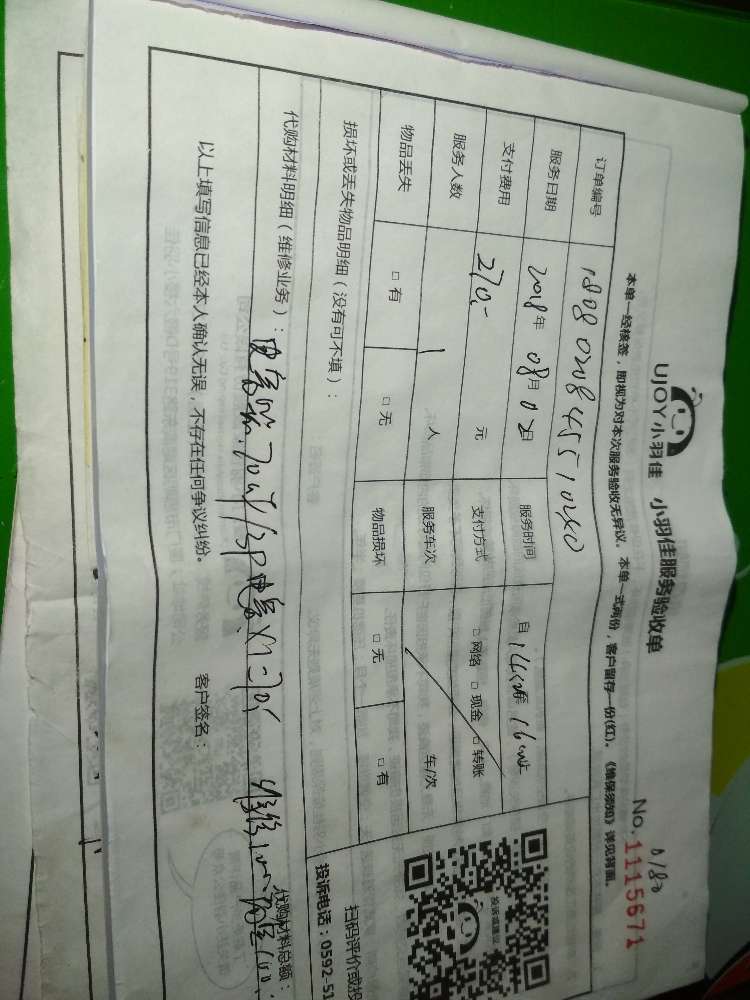 UJOY小羽佳 小羽佳服务验收单
No.1115671
本单一经核签，即视为对本次服务验收无异议。本单一式两份，客户留存一份(红)。《维保须知》详见背面。
订单编号 180802084551040
服务日期 2018年 08月 02日 服务时间 自
支付费用 270.- 元 支付方式 □网络 □现金 □转账
服务人数 1 人 服务车次 车/次
物品丢失 □有 □无 物品损坏 □无 □有
损坏或丢失物品明细（没有可不填）：
代购材料明细（维修业务）：
代购材料总额：
以上填写信息已经本人确认无误，不存在任何争议纠纷。 客户签名：
投诉或建议
扫码评价或投
投诉电话：0592-51